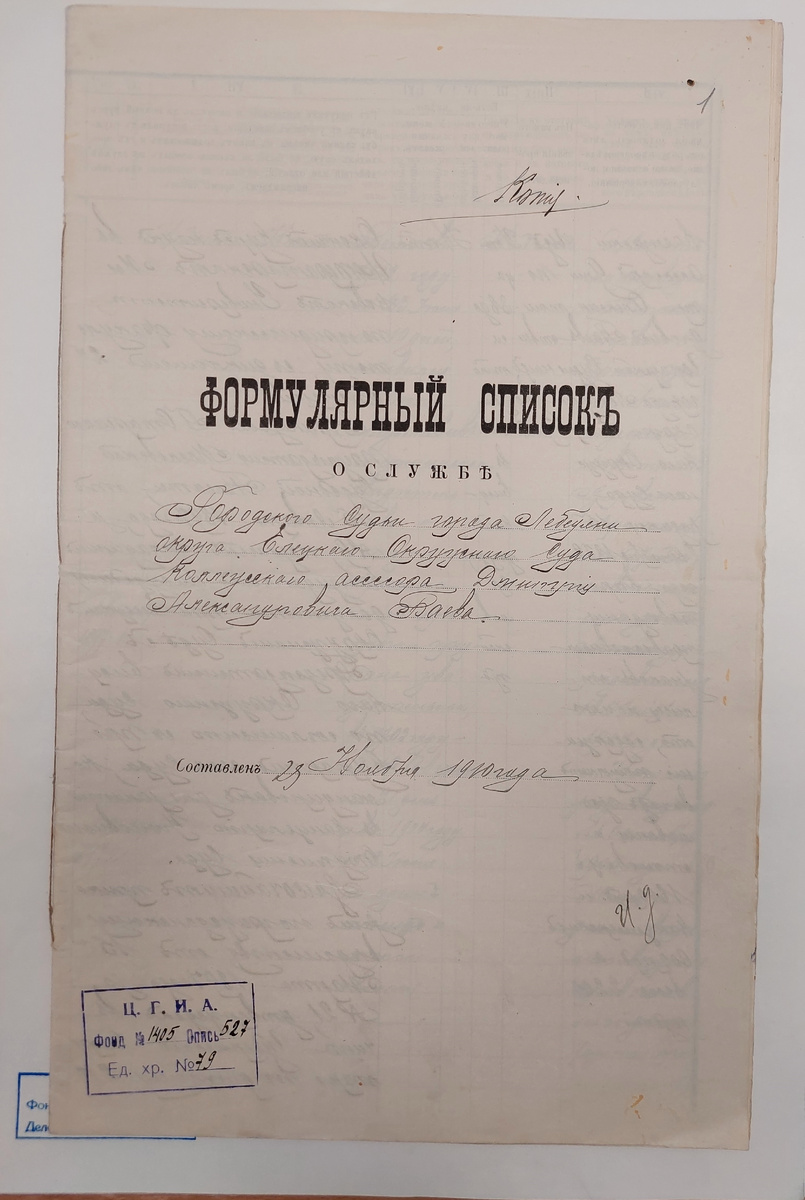 1
Копія.
ФОРМУЛЯРНЫЙ СПИСОКЪ
О СЛУЖБѢ
Городского Судьи города Лебедяни
округа Елецкаго Окружнаго Суда
Коллежскаго ассесора Дмитрія
Александровича Баева.
Составленъ 23 Ноября 1910 года
И. д.
Ц. Г. И. А.
Фонд № 1405 Опись 527
Ед. хр. № 79
Фон
Дел